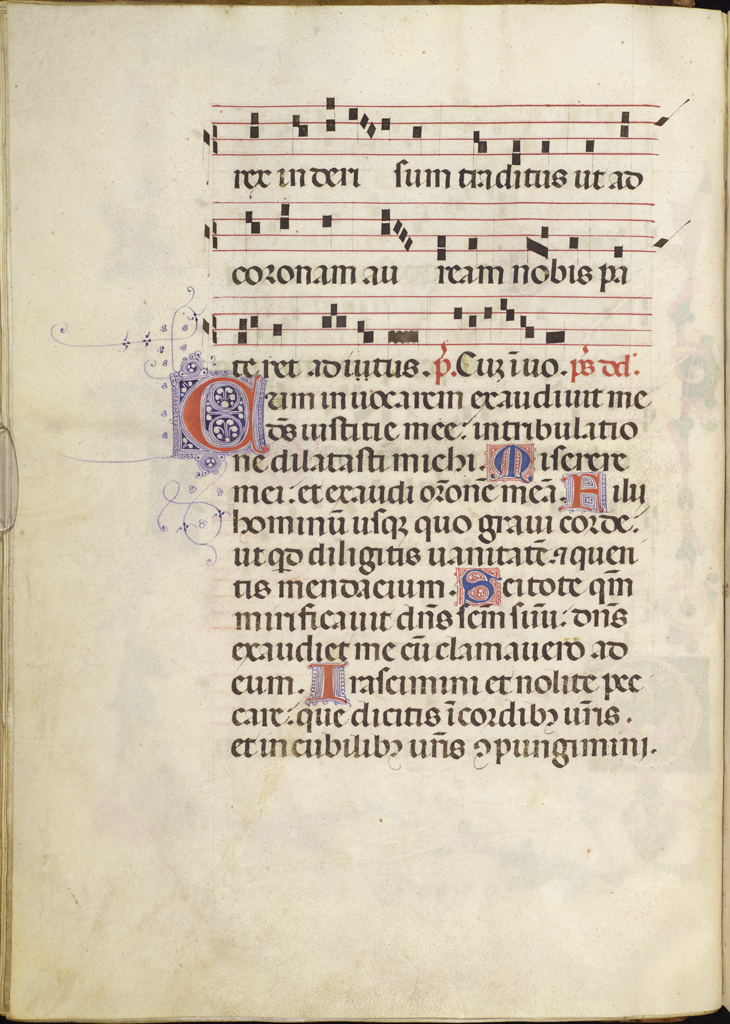 rex in deri sum traditus ut ad
coronam au ream nobis pa
te ret ad iutus. p̄. Cuȝ īuo. ps dd̄.
Cum inuocarem exaudiuit me
ds̄ iustitie mee: intribulatio
ne dilatasti michi. Miserere
mei: et exaudi orōnē meā. Filij
hominū usqȝ quo graui corde:
ut qd diligitis uanitatē. ⁊ queri
tis mendacium. Scitote qm̄
mirificauit dn̄s sc̄m suū: dn̄s
exaudiet me cū clamauero ad
eum. Irascimini et nolite pec
care: que dicitis ī cordibȝ ur̄is.
et in cubilibȝ ur̄is ꝯpungimini.